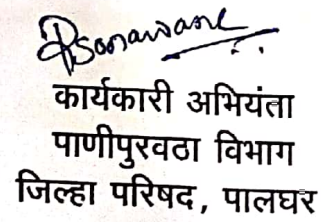 कार्यकारी अभियंता
पाणीपुरवठा विभाग
जिल्हा परिषद, पालघर